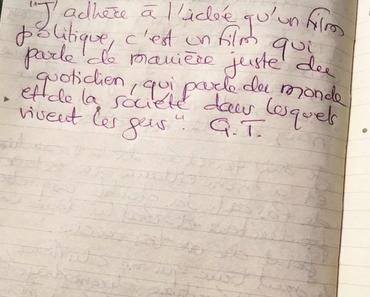 "J'adhère à l'idée qu'un film
politique, c'est un film qui
parle de manière juste du
quotidien, qui parle du monde
et de la société dans lesquels
vivent les gens". G.T.